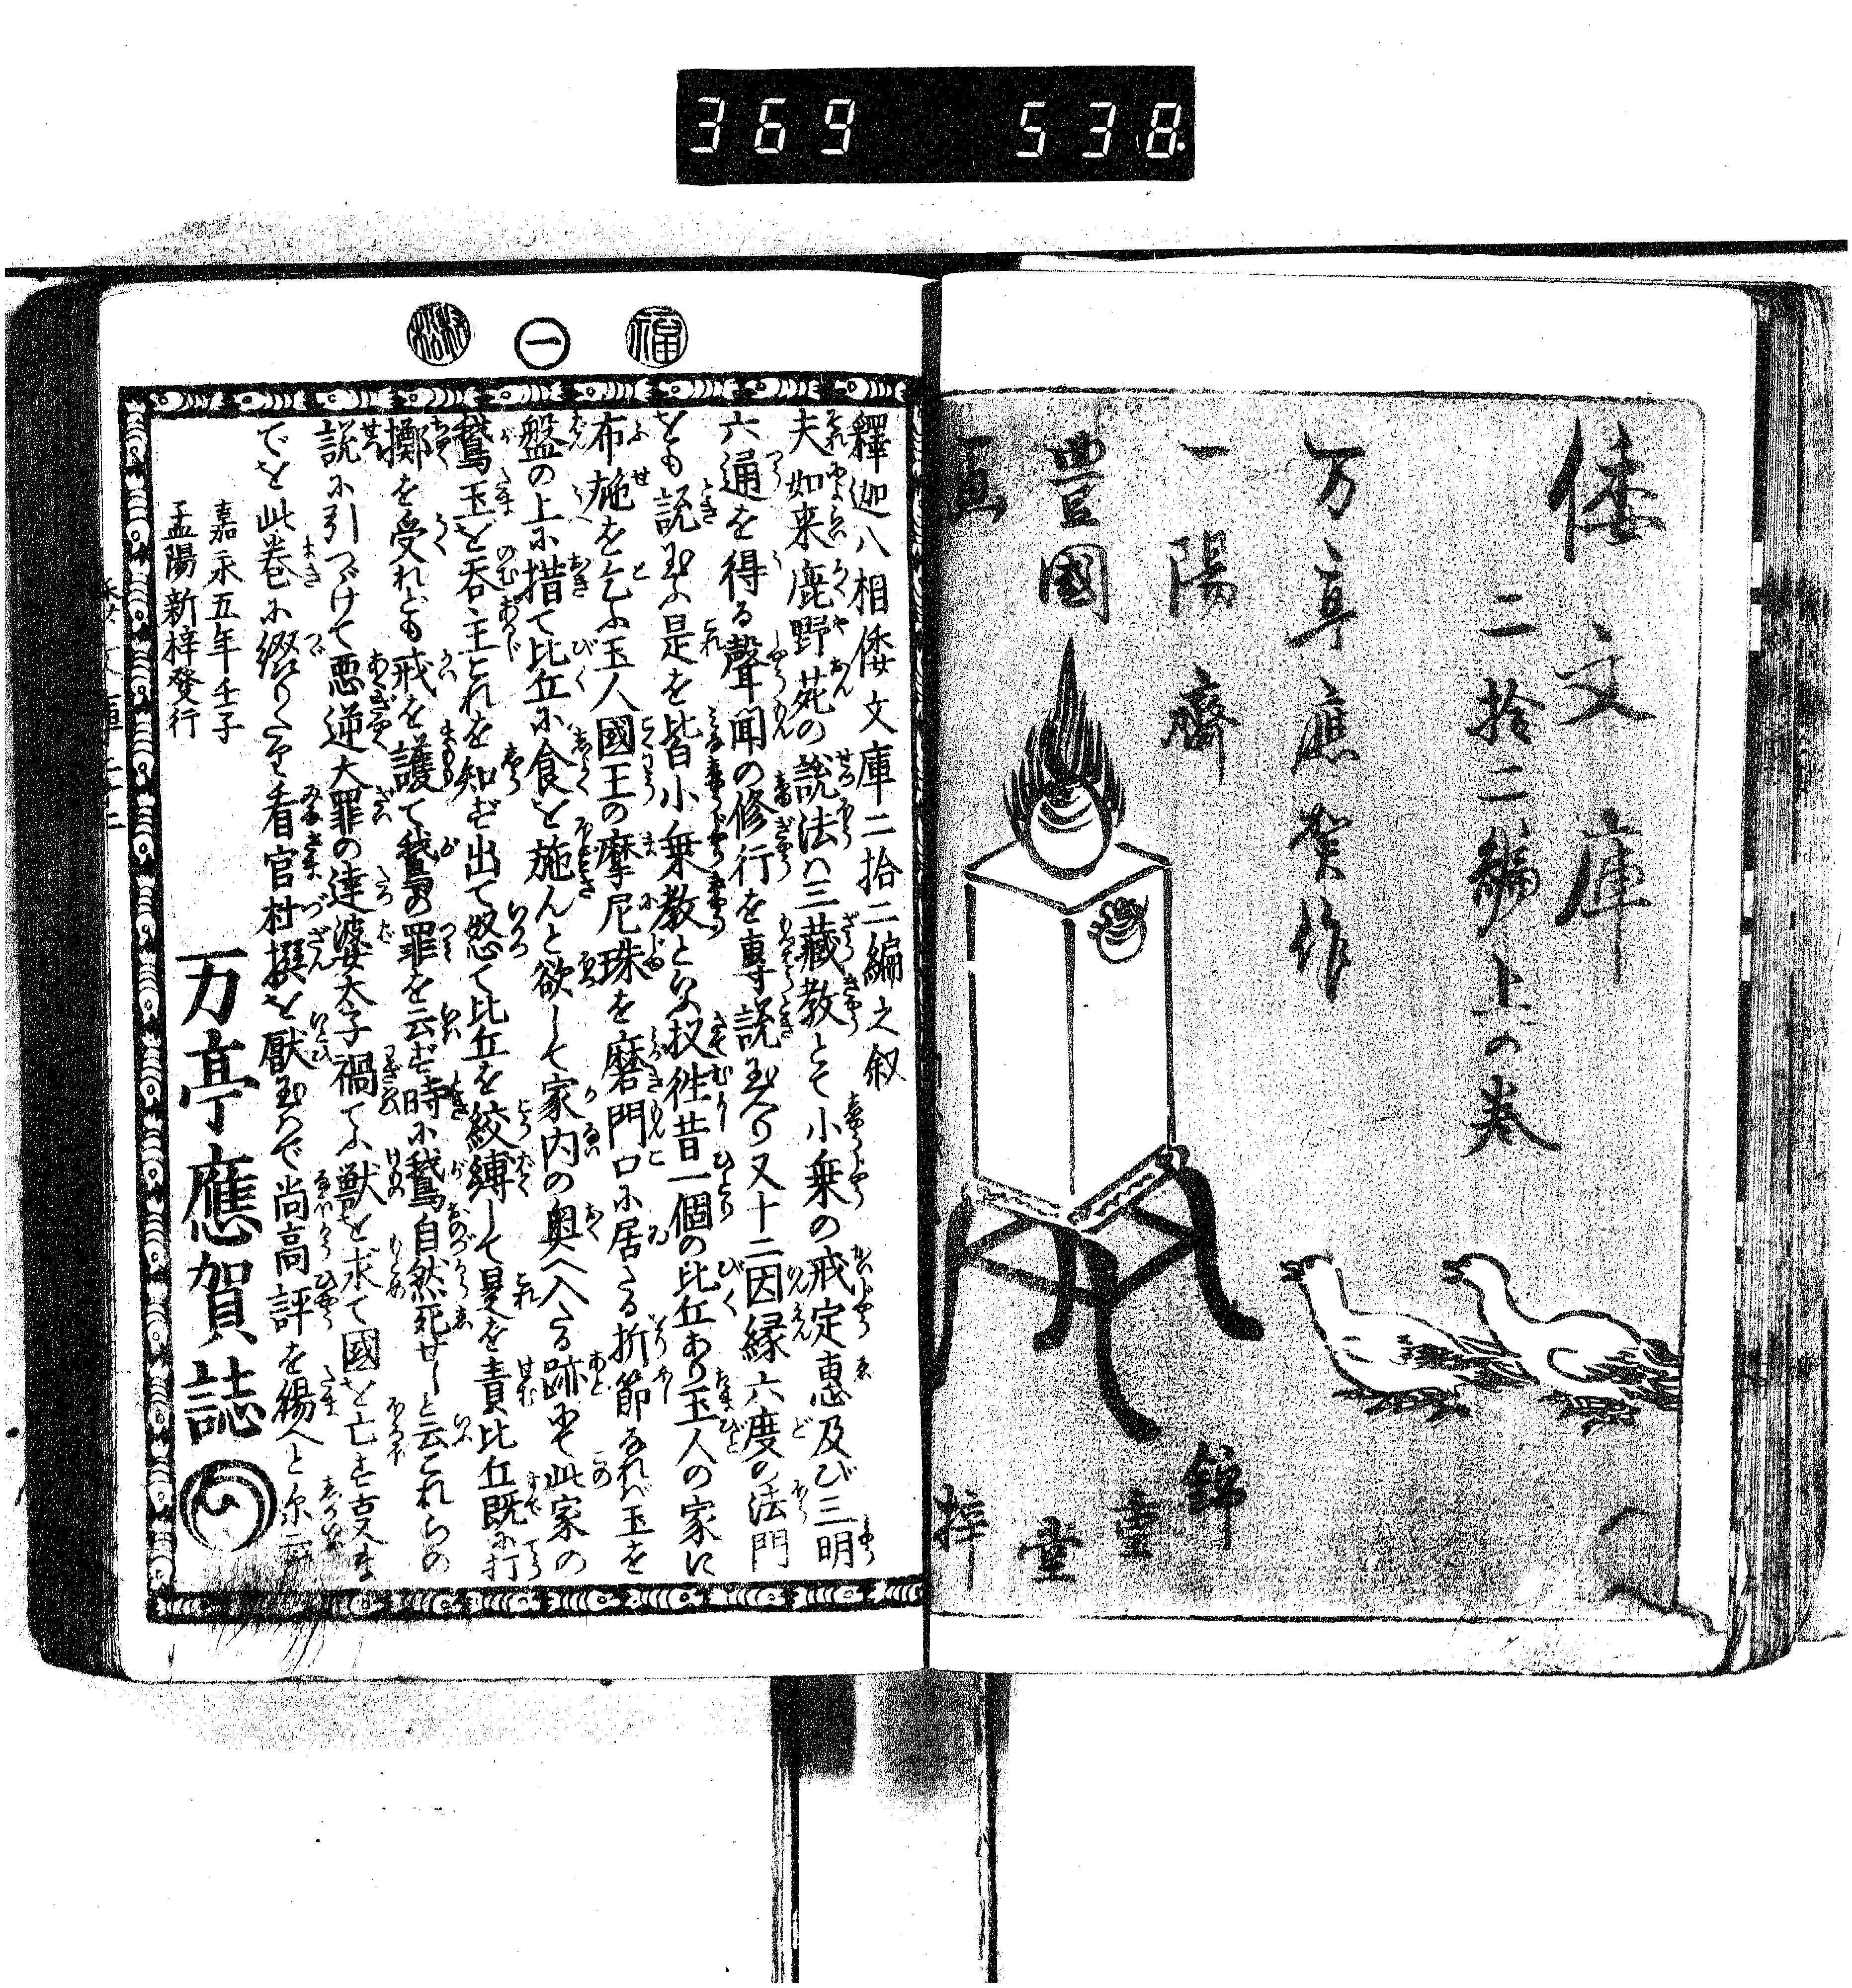 369 538
倭文庫
二拾二編上の巻
万亭應賀作
一陽齋
豊國
画
錦
重
堂
梓
福
一
釋迦八相倭文庫二拾二編之叙
夫如来鹿野苑の説法ハ三藏教とて小乗の戒定惠及び三明
六通を得る聲聞の修行を專説玉ひ又十二因縁六度の法門
をも説玉ふ是を皆小乗教といふ扠徃昔一個の比丘あり玉人の家に
布施を乞ふ玉人國王の摩尼珠を磨門口に居る折節なれバ玉を
盤の上に措て比丘に食を施んと欲して家内の奥へ入たる跡にて此家の
鵞玉を呑主これを知ず出て怒て比丘を絞縛して是を責比丘既に打
擲を受れども戒を護て鵞の罪を云ず時に鵞自然死せしと云これらの
説に引つゞけて悪逆大罪の達婆太子禍てふ獣を求て國を亡す支ま
でを此巻に綴りたれば看官村撰を厭玉ハで尚高評を楊へと尓云
嘉永五年壬子
孟陽新梓發行
万亭應賀誌